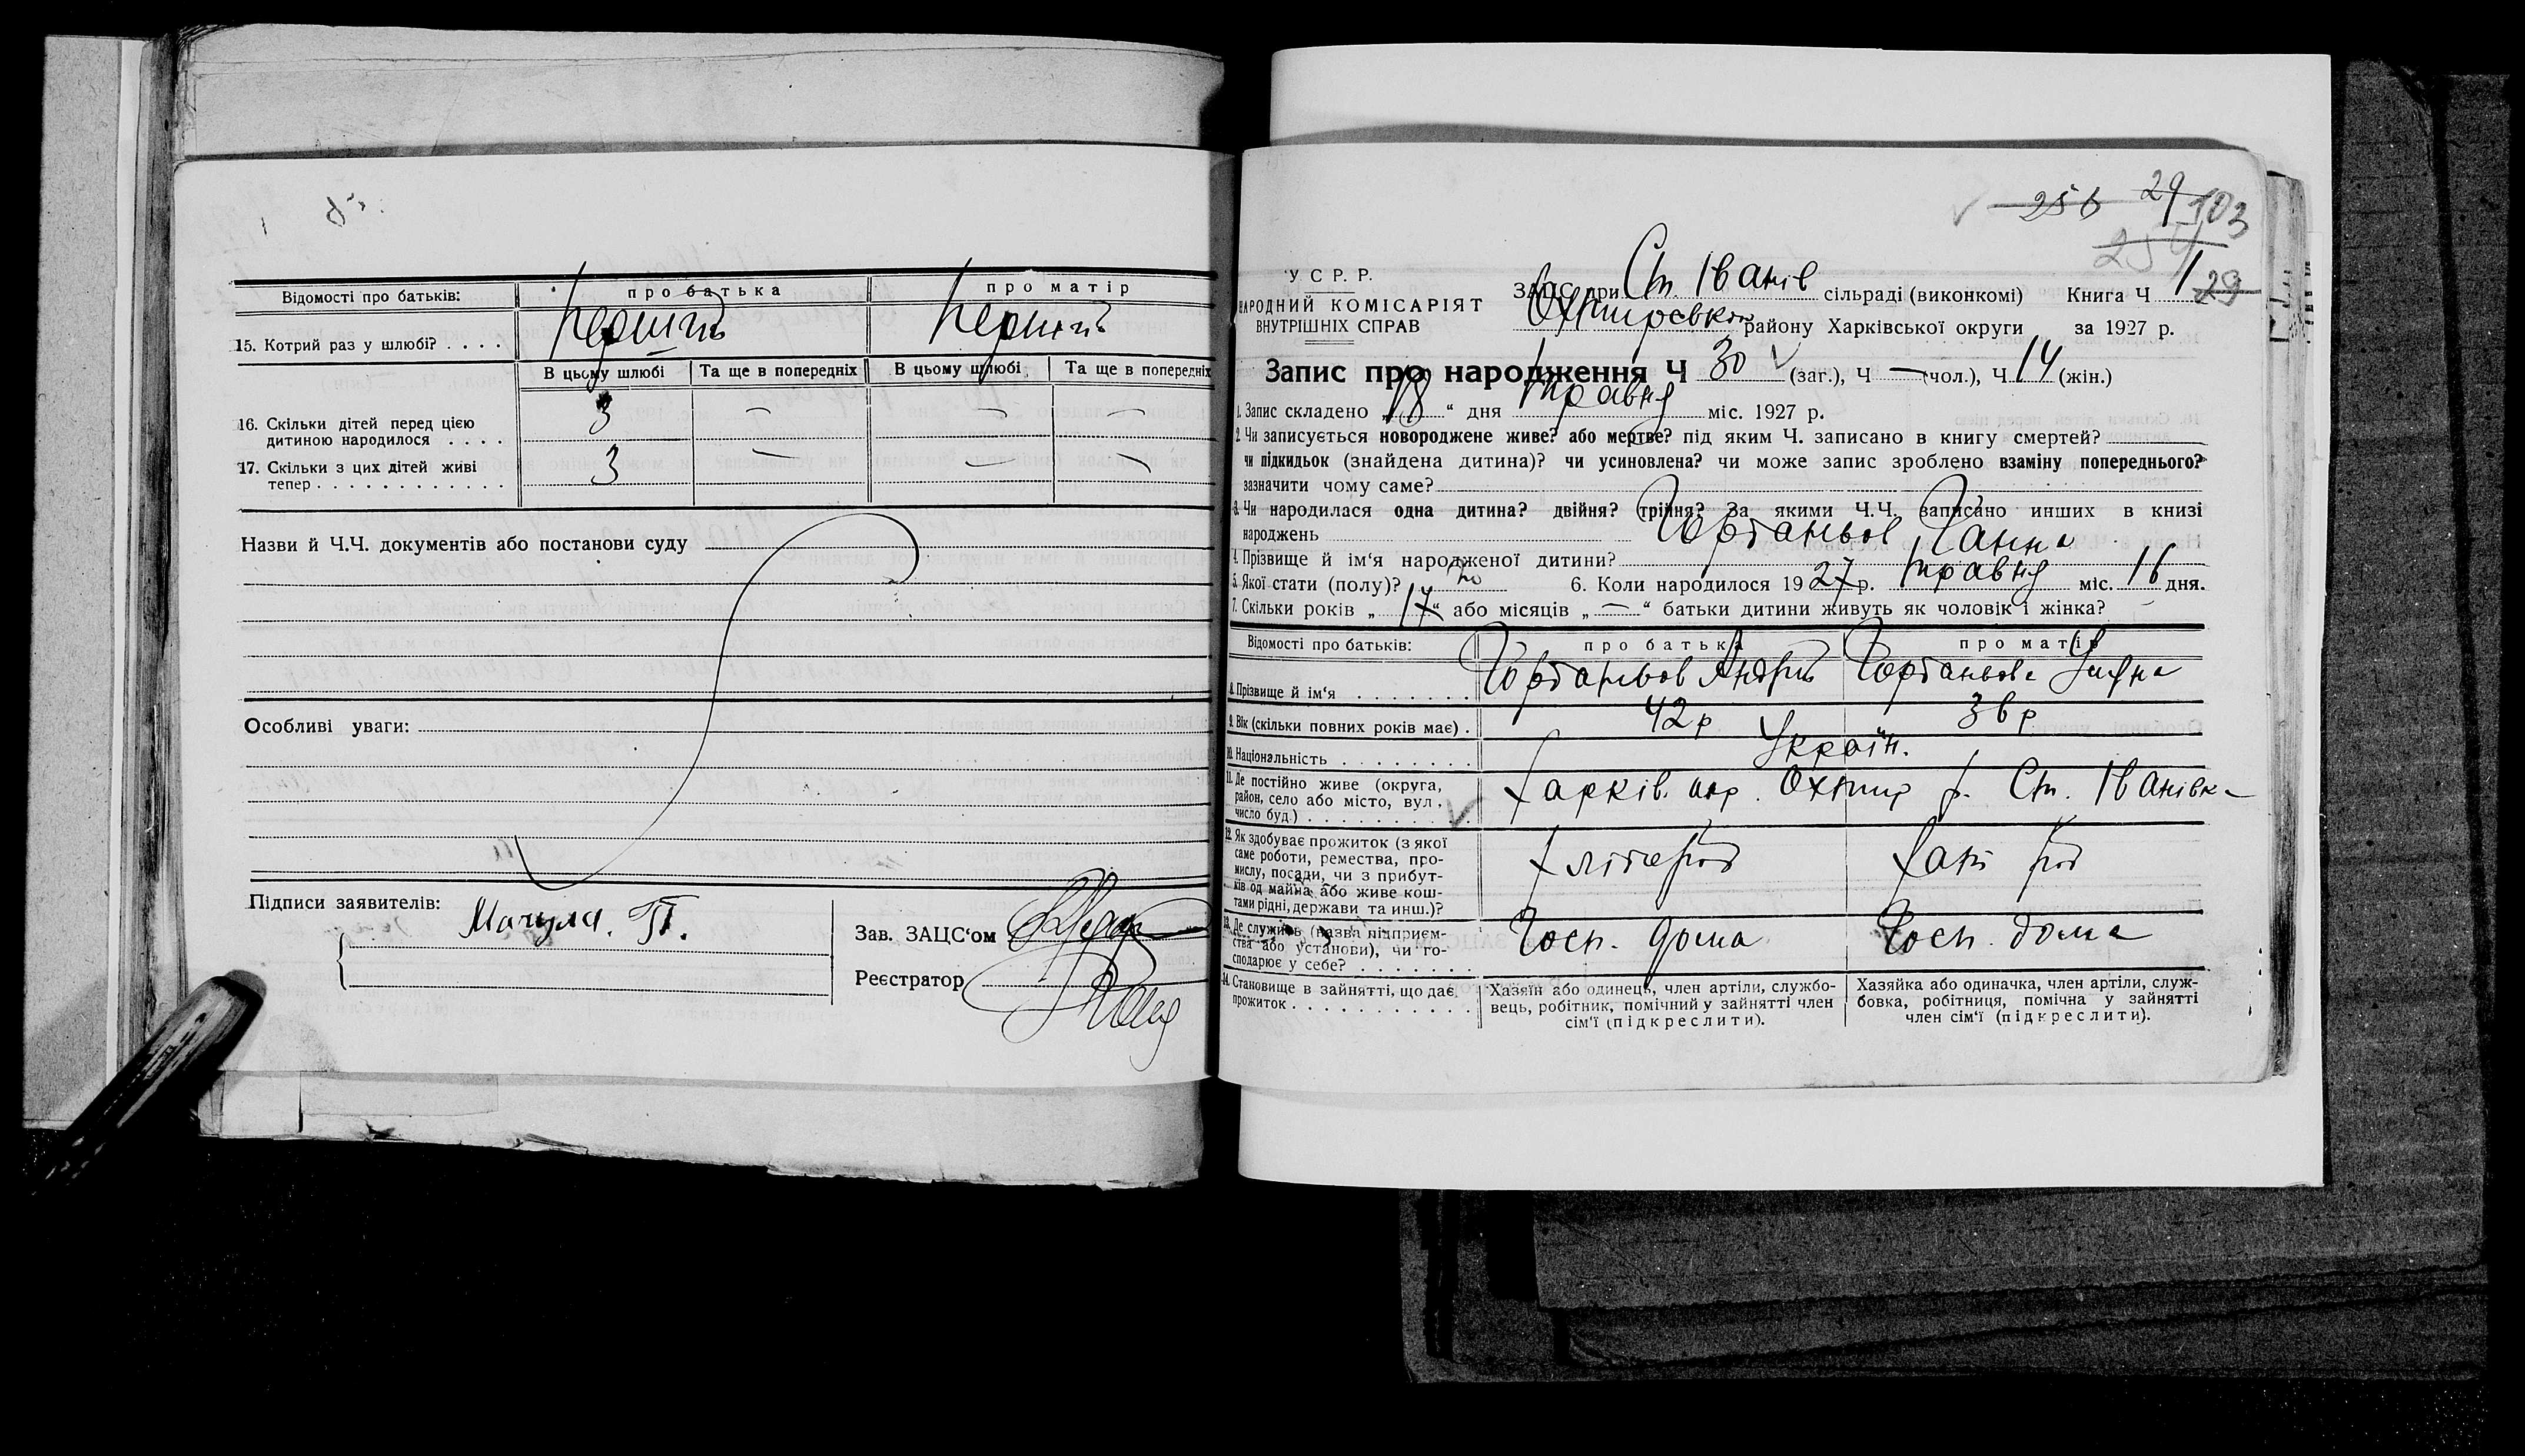 Відомості про батьків: про батька про матір
15. Котрий раз у шлюбі? . . . . Перший Перший
В цьому шлюбі Та ще в попередніх В цьому шлюбі Та ще в попередніх
16. Скільки дітей перед цією
дитиною народилося . . . . 3 — — —
17. Скільки з цих дітей живі
тепер . . . . . . . . . . . . 3 — — —
Назви й Ч.Ч. документів або постанови суду
Особливі уваги:
Підписи заявителів:
Мачула. П.
Зав. ЗАЦС'ом
Реєстратор
256 29 103
254
У С Р. Р.
НАРОДНИЙ КОМІСАРІЯТ
ВНУТРІШНІХ СПРАВ
ЗАЦС при Ст. Іванів сільраді (виконкомі) Книга Ч 1 29
Охтирсько району Харківської округи за 1927 р.
Запис про народження Ч 30 (заг.), Ч — (чол.), Ч 14 (жін.)
1. Запис складено „ 18 “ дня травня міс. 1927 р.
2. Чи записується новороджене живе? або мертве? під яким Ч. записано в книгу смертей?
чи підкидьок (знайдена дитина)? чи усиновлена? чи може запис зроблено взаміну попереднього?
зазначити чому саме?
3. Чи народилася одна дитина? двійня? трійня? За якими Ч.Ч. записано инших в книзі
народжень
4. Прізвище й ім'я народженої дитини? Горбаньов Ганна
5. Якої стати (полу)? 6. Коли народилося 1927 р. травня міс. 16 дня.
7. Скільки років „ 17 “ або місяців „ — “ батьки дитини живуть як чоловік і жінка?
Відомості про батьків: про батька про матір
8. Прізвище й ім'я . . . . . . . Горбаньов Андрій Горбаньова
9. Вік (скільки повних років має) . 42 р 36 р
10. Національність . . . . . . . . Україн.
11. Де постійно живе (округа,
район, село або місто, вул.,
число буд.) . . . . . . . . . . Харків. окр. Охтир р. Ст. Іванівка
12. Як здобуває прожиток (з якої
саме роботи, ремества, про-
мислу, посади, чи з прибут-
ків од майна або живе кош-
тами рідні, держави та инш.)? Хлібороб Хат роб
13. Де служить (назва підприєм-
ства або установи), чи го-
сподарює у себе? . . . . . . . Госп. дома Госп. дома
14. Становище в зайнятті, що дає
прожиток . . . . . . . . . . . .
Хазяїн або одинець, член артіли, службо-
вець, робітник, помічний у зайнятті член
сім'ї (підкреслити).
Хазяйка або одиначка, член артіли, служ-
бовка, робітниця, помічна у зайнятті
член сім'ї (підкреслити).